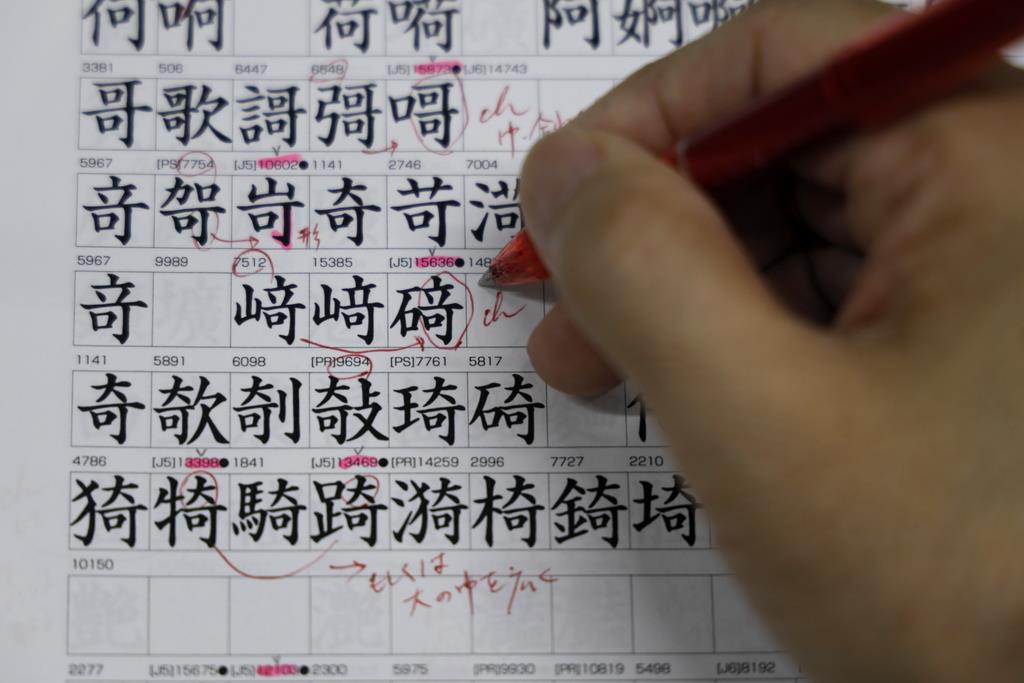 何 啊 荷 嗬 阿 婀 啊
3381 506 6447 6548 [J5]15873● [J6]14743
哥 歌 謌 彁 ch
5967 [PS]7754 [J5]10602● 1141 2746 7004
竒 袈 岢 奇 苛 形
5967 9989 7512 15385 [J5]15636● 148
竒 㟢 㟢 碕 ch
1141 5891 6098 [PR]9694 [PS]7761 5817
奇 欹 剞 敧 琦 碕
4786 [J5]13398● 1841 [J5]13469● [PR]14259 2996 7727 2210
猗 犄 騎 踦 漪 椅 錡 埼
10150
→もしくは
大の中を広く
2277 [J5]15675● [J5]12103● 2300 5975 [PR]9930 [PR]10819 5498 [J6]8192